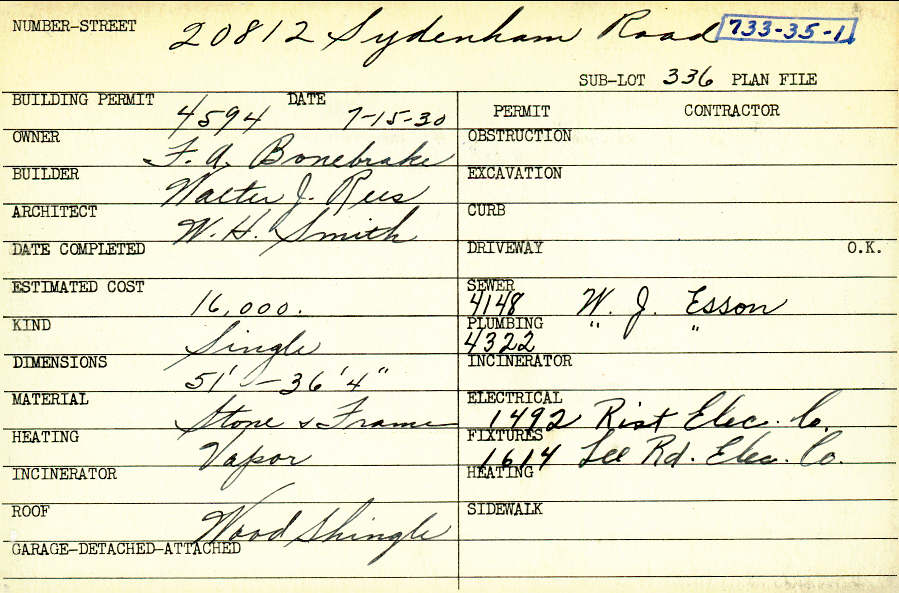 NUMBER-STREET 20812 Sydenham Road 733-35-1
SUB-LOT 336 PLAN FILE
BUILDING PERMIT 4594 DATE 7-15-30
PERMIT CONTRACTOR
OWNER F. A. Bonebrake
OBSTRUCTION
BUILDER Walter J. Rees
EXCAVATION
ARCHITECT W. H. Smith
CURB
DATE COMPLETED
DRIVEWAY O.K.
ESTIMATED COST 16,000.
SEWER 4148 W. J. Esson
KIND Single
PLUMBING 4322 " "
DIMENSIONS 51' - 36'4"
INCINERATOR
MATERIAL Stone & Frame
ELECTRICAL 1492 Rist Elec. Co.
HEATING Vapor
FIXTURES 1614 Lee Rd. Elec. Co.
INCINERATOR
HEATING
ROOF Wood Shingle
SIDEWALK
GARAGE-DETACHED-ATTACHED